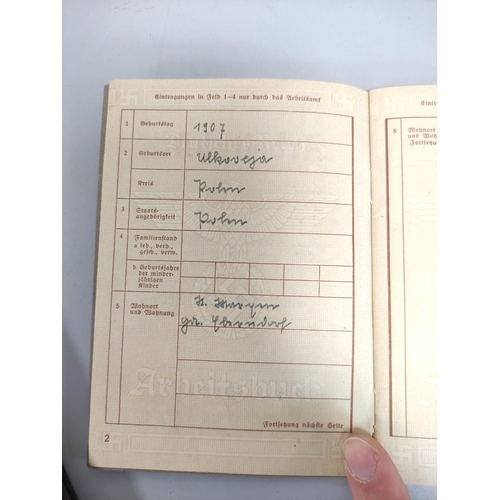 Eintragungen in Feld 1—4 nur durch das Arbeitsamt
1 Geburtstag 1907
2 Geburtsort Ulkoveja
Kreis Polen
3 Staats-
angehörigkeit Polen
4 Familienstand
a led., verh.,
gesch., verw.
b Geburtsjahre
der minder-
jährigen
Kinder
5 Wohnort
und Wohnung
St. Margen
gd. Eberndorf
Arbeitsbuch
Fortsetzung nächste Seite
2
5 Wohnort
und Wohnung
Fortsetzung